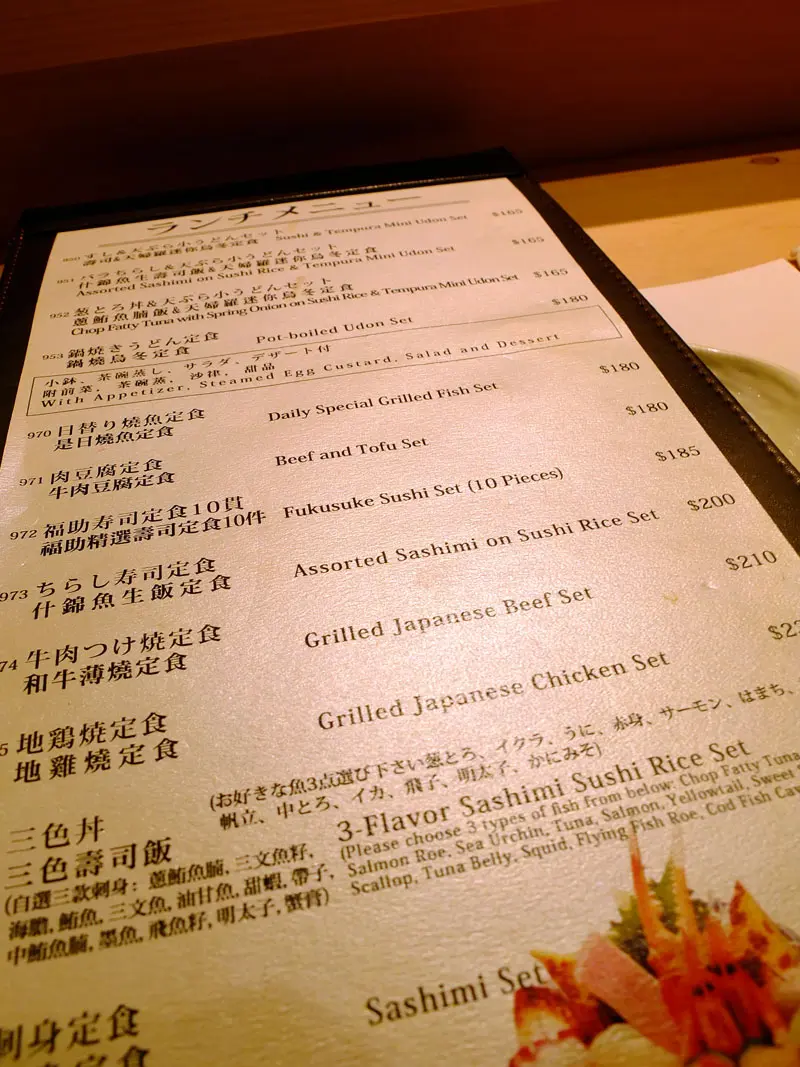 ランチメニュー
950 すし&天ぷら小うどんセット
壽司&天婦羅迷你烏冬定食 Sushi & Tempura Mini Udon Set $165
951 バラちらし&天ぷら小うどんセット
什錦魚生壽司飯&天婦羅迷你烏冬定食
Assorted Sashimi on Sushi Rice & Tempura Mini Udon Set $165
952 葱とろ丼&天ぷら小うどんセット
蔥鮪魚腩飯&天婦羅迷你烏冬定食
Chop Fatty Tuna with Spring Onion on Sushi Rice & Tempura Mini Udon Set $165
953 鍋焼きうどん定食
鍋燒烏冬定食 Pot-boiled Udon Set $180
小鉢、茶碗蒸し、サラダ、デザート付
附前菜, 茶碗蒸, 沙律, 甜品
With Appetizer, Steamed Egg Custard, Salad and Dessert
970 日替り焼魚定食 Daily Special Grilled Fish Set $180
是日燒魚定食
971 肉豆腐定食 Beef and Tofu Set $180
牛肉豆腐定食
972 福助寿司定食10貫 Fukusuke Sushi Set (10 Pieces) $185
福助精選壽司定食10件
973 ちらし寿司定食 Assorted Sashimi on Sushi Rice Set $200
什錦魚生飯定食
74 牛肉つけ焼定食 Grilled Japanese Beef Set $210
和牛薄燒定食
5 地鶏焼定食 Grilled Japanese Chicken Set
地雞燒定食
(お好きな魚3点選び下さい葱とろ、イクラ、うに、赤身、サーモン、はまち、
帆立、中とろ、イカ、飛子、明太子、かにみそ)
三色丼 3-Flavor Sashimi Sushi Rice Set
三色壽司飯
(Please choose 3 types of fish from below: Chop Fatty Tuna
Salmon Roe, Sea Urchin, Tuna, Salmon, Yellowtail, Sweet
Scallop, Tuna Belly, Squid, Flying Fish Roe, Cod Fish
(自選三款刺身: 蔥鮪魚腩, 三文魚籽,
海膽, 鮪魚, 三文魚, 油甘魚, 甜蝦, 帶子,
中鮪魚腩, 墨魚, 飛魚籽, 明太子, 蟹膏)
刺身定食 Sashimi Set
定食